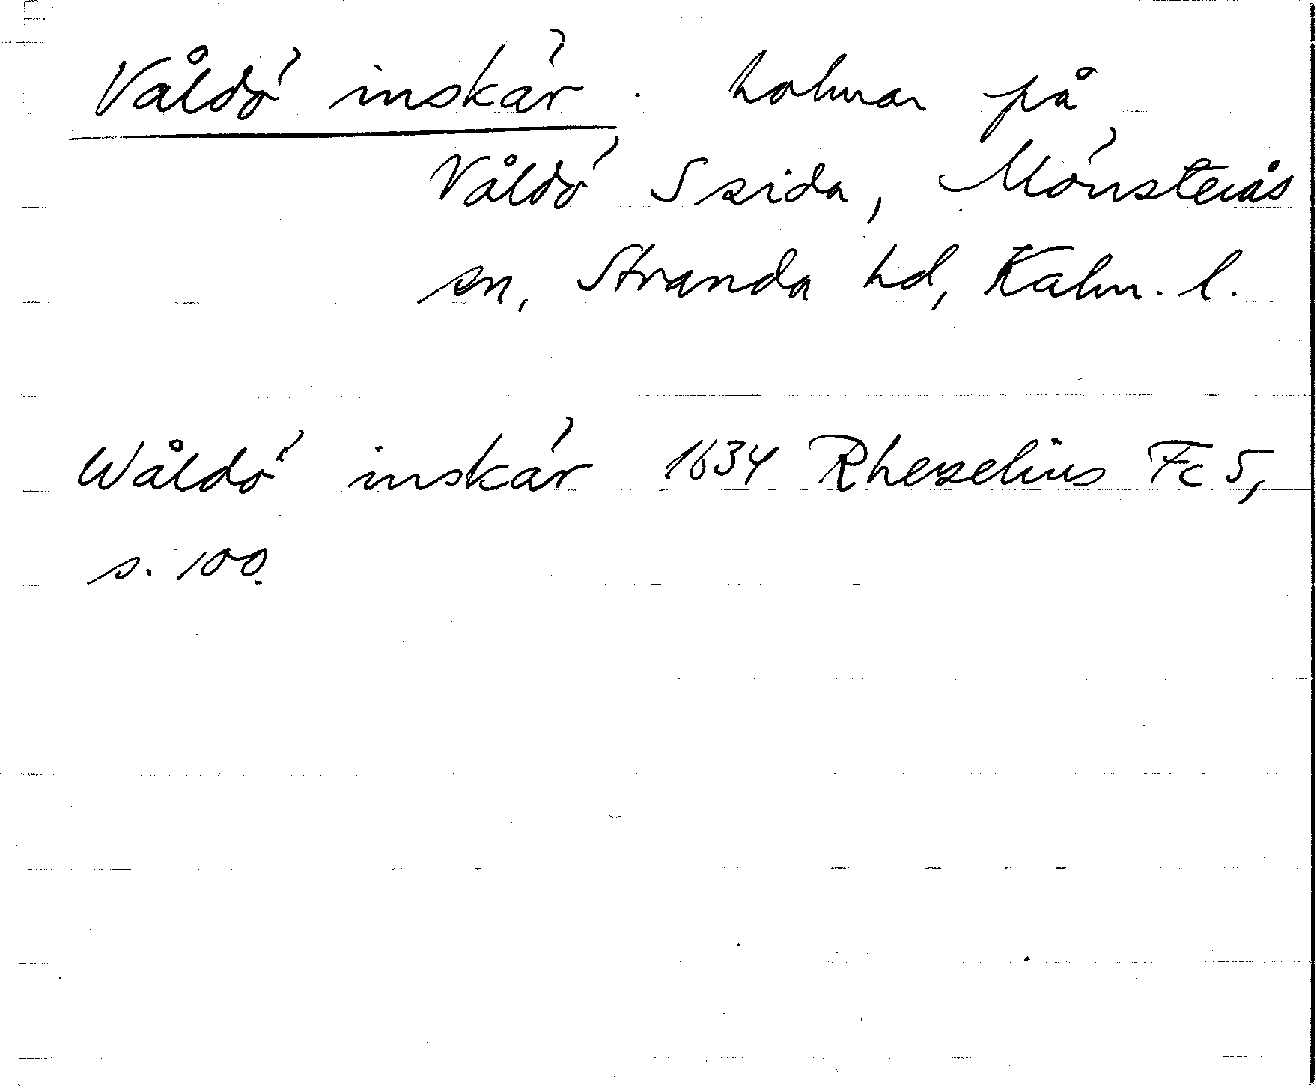 Våldö inskär. holmar på
Våldö S sida, Mönsterås
sn, Stranda hd, Kalm. l.
Wåldö inskär 1634 Rhezelius Fc 5,
s. 100.